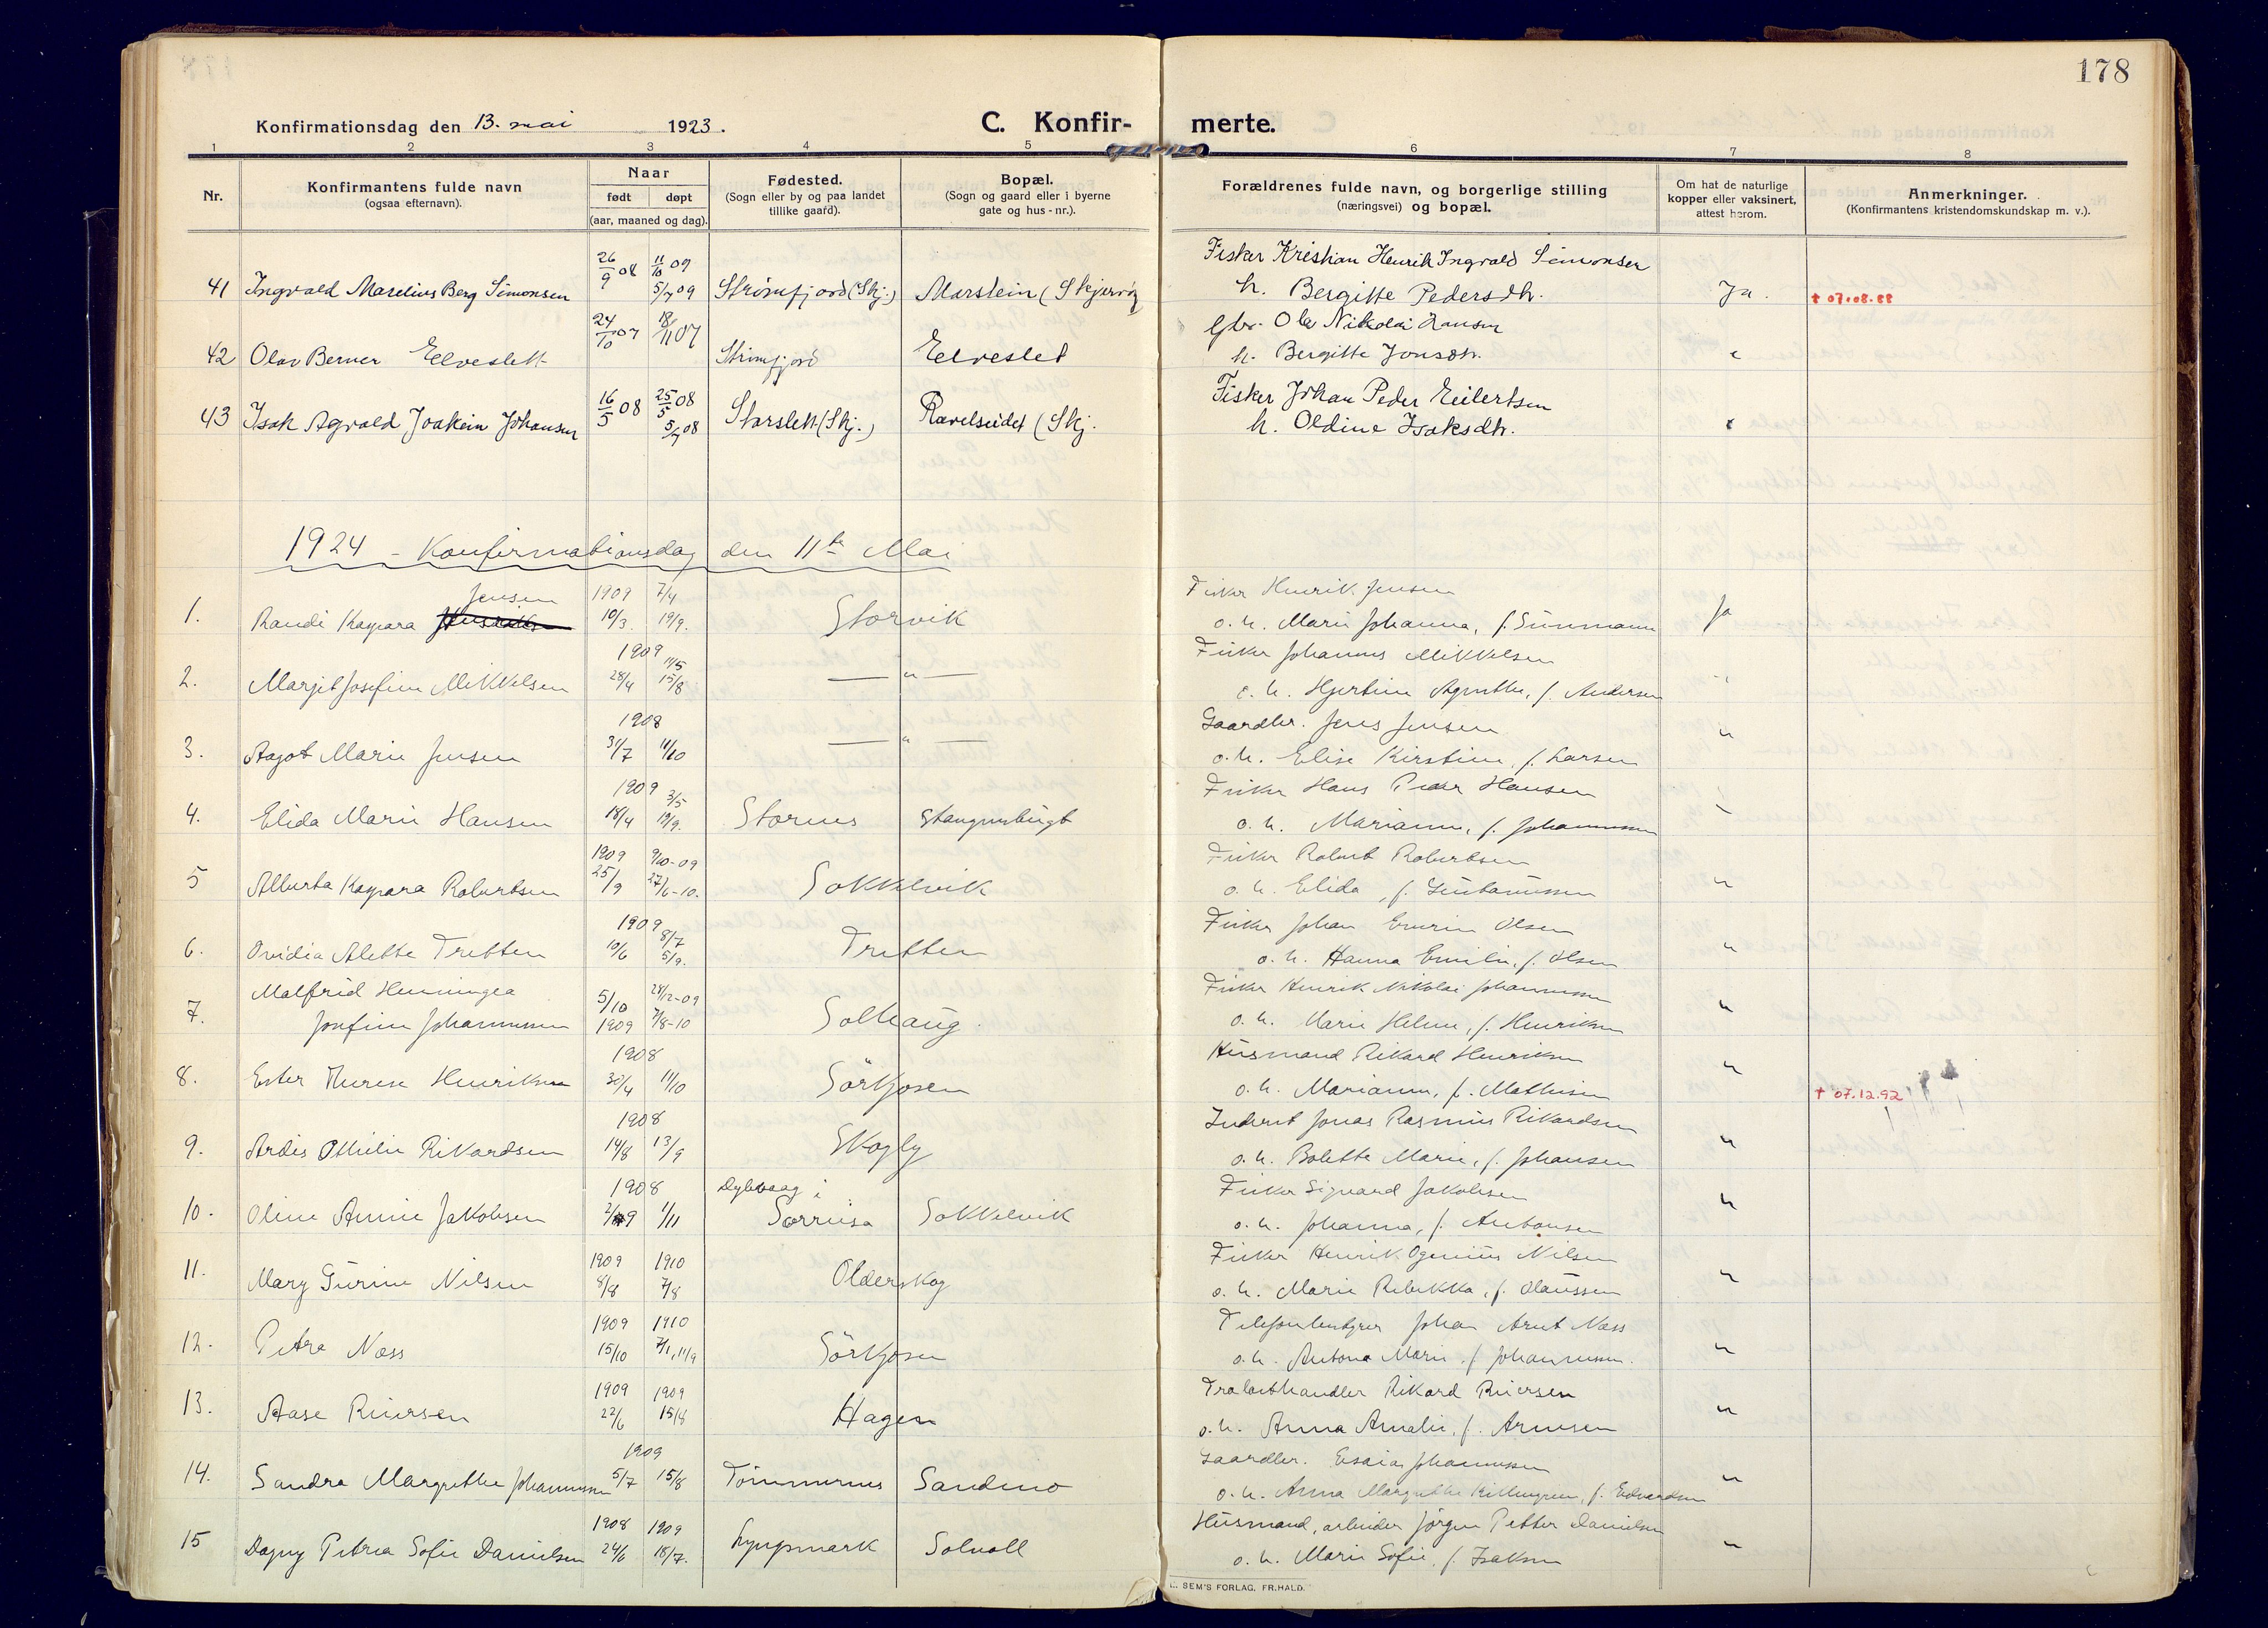 178
Konfirmationsdag den 13. mai 1923.
C. Konfir- merte.
1 2 3 4 5 6 7 8
Nr.
Konfirmantens fulde navn
(ogsaa efternavn).
Naar
født døpt
(aar, maaned og dag).
Fødested.
(Sogn eller by og paa landet
tillike gaard).
Bopæl.
(Sogn og gaard eller i byerne
gate og hus-nr.).
Forældrenes fulde navn, og borgerlige stilling
(næringsvei) og bopæl.
Om hat de naturlige
kopper eller vaksinert,
attest herom.
Anmerkninger.
(Konfirmantens kristendomskundskap m. v.).
26/9 08 11/10 09 Fisker Kristian Henrik Ingvald Simonsen
41 Ingvald Marelius Berg Simonsen 5/7 09 Strømfjord (Skj.) Marstein (Skjervøy h. Bergitte Pedersdtr. Ja. † 07.08.88
24/10 07 18/11 07 Gbr. Ole Nikolai Hansen
42 Olav Berner Elveslett Strømfjord Elveslet h. Bergitte Jonsdtr. "
16/5 08 25/5 08 Fisker Johan Peder Eilertsen
43 Isak Agvald Joakim Johansen 5/7 08 Storslett (Skj.) Ravelseidet (Skj. h. Oldine Isaksdtr. "
1924 - Konfirmationsdag den 11te Mai
Jensen 1909 7/4 Fisker Henrik Jensen
1. Randi Kaspara Henriksen 10/3. 19/9. Storvik o. h. Marie Johanna, f. Simmann Ja
1909 11/5 Fisker Johannes Mikkelsen
2. Margit Josefine Mikkelsen 28/4 15/8 — " — o. h. Hjertine Agnethe, f. Andersen "
1908 Gaardbr. Jens Jensen
3. Aagot Marie Jensen 31/7 11/10 — " — o. h. Elise Kirstine, f. Larsen "
1909 3/5 Fisker Hans Peder Hansen
4. Elida Marie Hansen 18/4 19/9. Stornes Stangnesbugt o. h. Marianne, f. Johannessen "
1909 9/10-09 Fisker Robert Robertsen
5 Alberta Kaspara Robertsen 25/9 27/6-10. Sokkelvik o. h. Elida, f. Gustavussen "
1909 8/7 Fisker Johan Enevin Olsen
6. Ovidia Alette Tretten 10/6 5/9. Tretten o. h. Hanna Emilie, f. Olsen "
Malfrid Henningea 5/10 28/12-09 Fisker Henrik Nikolai Johannessen
7. Josefine Johannessen 1909 7/8-10 Solhaug. o. h. Marie Helene, f. Henriksen "
1908 Husmand Rikard Henriksen
8. Ester Therese Henriksen 30/4 11/10 Sørkjosen o. h. Marianne, f. Mathisen " † 07.12.92
1908 Inderst Jonas Rasmus Rikardsen
9. Ardis Othilie Rikardsen 14/8 13/9 Skogly o. h. Bolette Marie, f. Johansen "
1908 Dybvaag i Fisker Sigvard Jakobsen
10. Oline Annie Jakobsen 2/9 1/11 Sørreisa Sokkelvik o. h. Johanna, f. Antonsen "
1909 1910 Fisker Henrik Ogenius Nilsen
11. Mary Gurine Nilsen 8/8 7/8 Olderskog o. h. Marie Rebekka, f. Olaussen "
1909 1910 Telefonbestyrer Johan Arnt Næss
12. Petra Næss 15/10 7/1, 11/9 Sørkjosen o. h. Antona Marie, f. Johannessen. "
1909 1909 Tralasthandler Rikard Riiersen
13. Aase Riiersen 22/6 15/8 Hagen o. h. Anna Amalie, f. Arnesen "
1909 Gaardbr. Esaias Johannessen
14. Sandra Margrethe Johannessen 5/7 15/8 Tømmernes Sandmo o. h. Anna Margrethe Killengren, f. Edvardsen "
1908 1909 Husmand, arbeider Jørgen Petter Danielsen
15 Dagny Petrea Sofie Danielsen 24/6 18/7. Lyngsmark Solvoll o. h. Marie Sofie, f. Isaksen "
SEM'S FORLAG, FR.HALD.